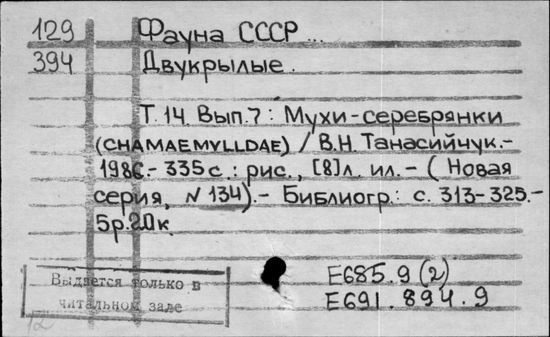 129 Фауна СССР ...
394 Двукрылые.
Т.14 Вып.7: Мухи-серебрянки
(CHAMAEMYLLDAE) / В.Н. Танасийчук.-
1986.- 335с.: рис., [8]л. ил.- ( Новая
серия, N 134).- Библиогр.: с. 313-325.-
5р.20к
E685.9(2)
E691.894.9
Выдается только в
читальном зале
12